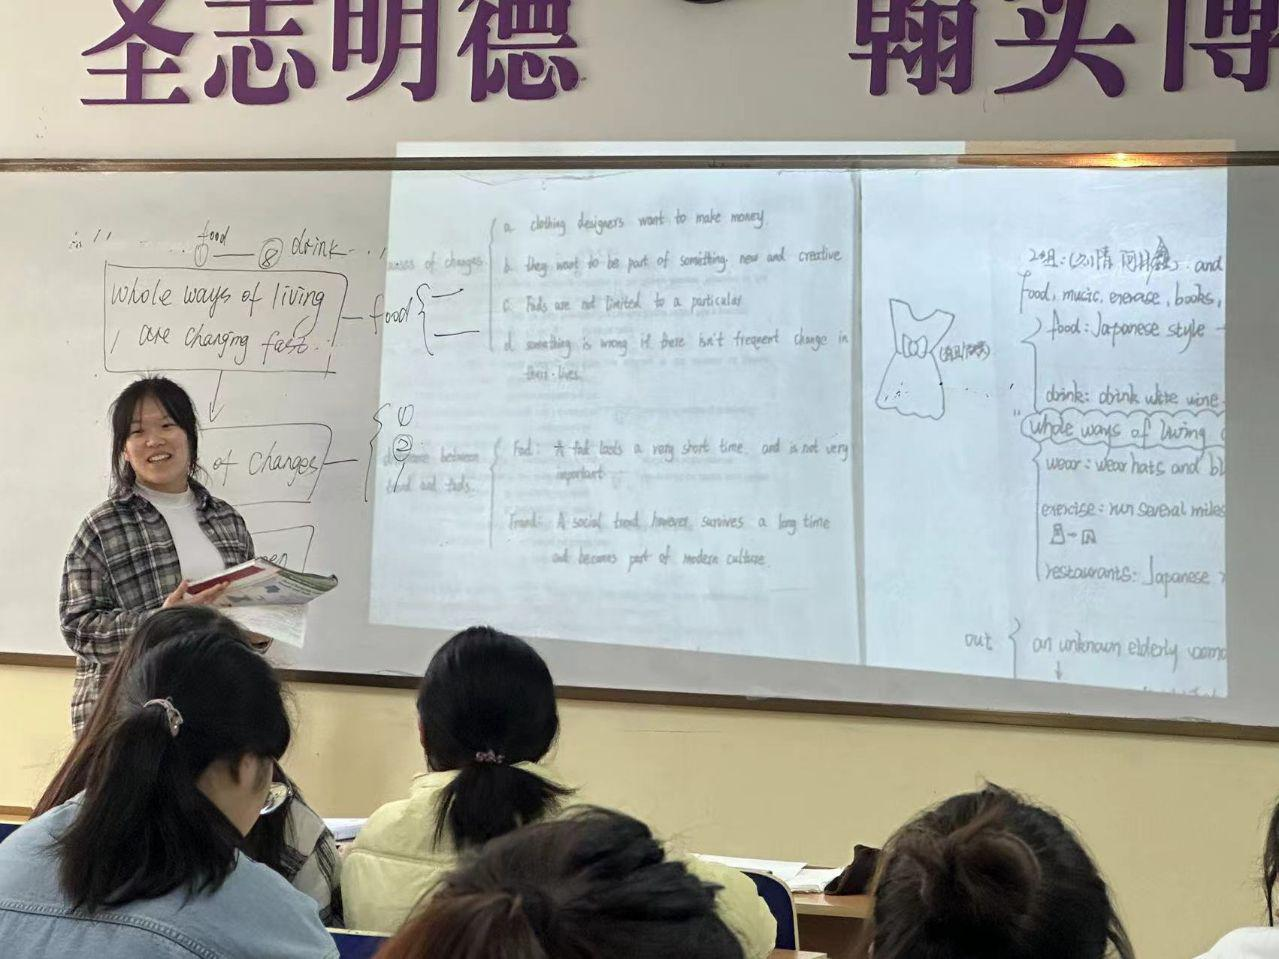 圣志明德 翰实博
food
① ⑧ drink
whole ways of living
are changing fast.
food
of changes
①
②
causes of changes
a. clothing designers want to make money
b. they want to be part of something new and creative
c. Fads are not limited to a particular
d. something is wrong if there isn't frequent change in
their lives.
between
trend and fads.
Fad: a fad lasts a very short time and is not very
important
Trend: A social trend however, survives a long time
and becomes part of modern culture.
2组: and
food, music, exercise, books,
food: Japanese style
drink: drink white wine
whole ways of living
wear: wear hats and
exercise: run several miles
restaurants: Japanese
out
an unknown elderly